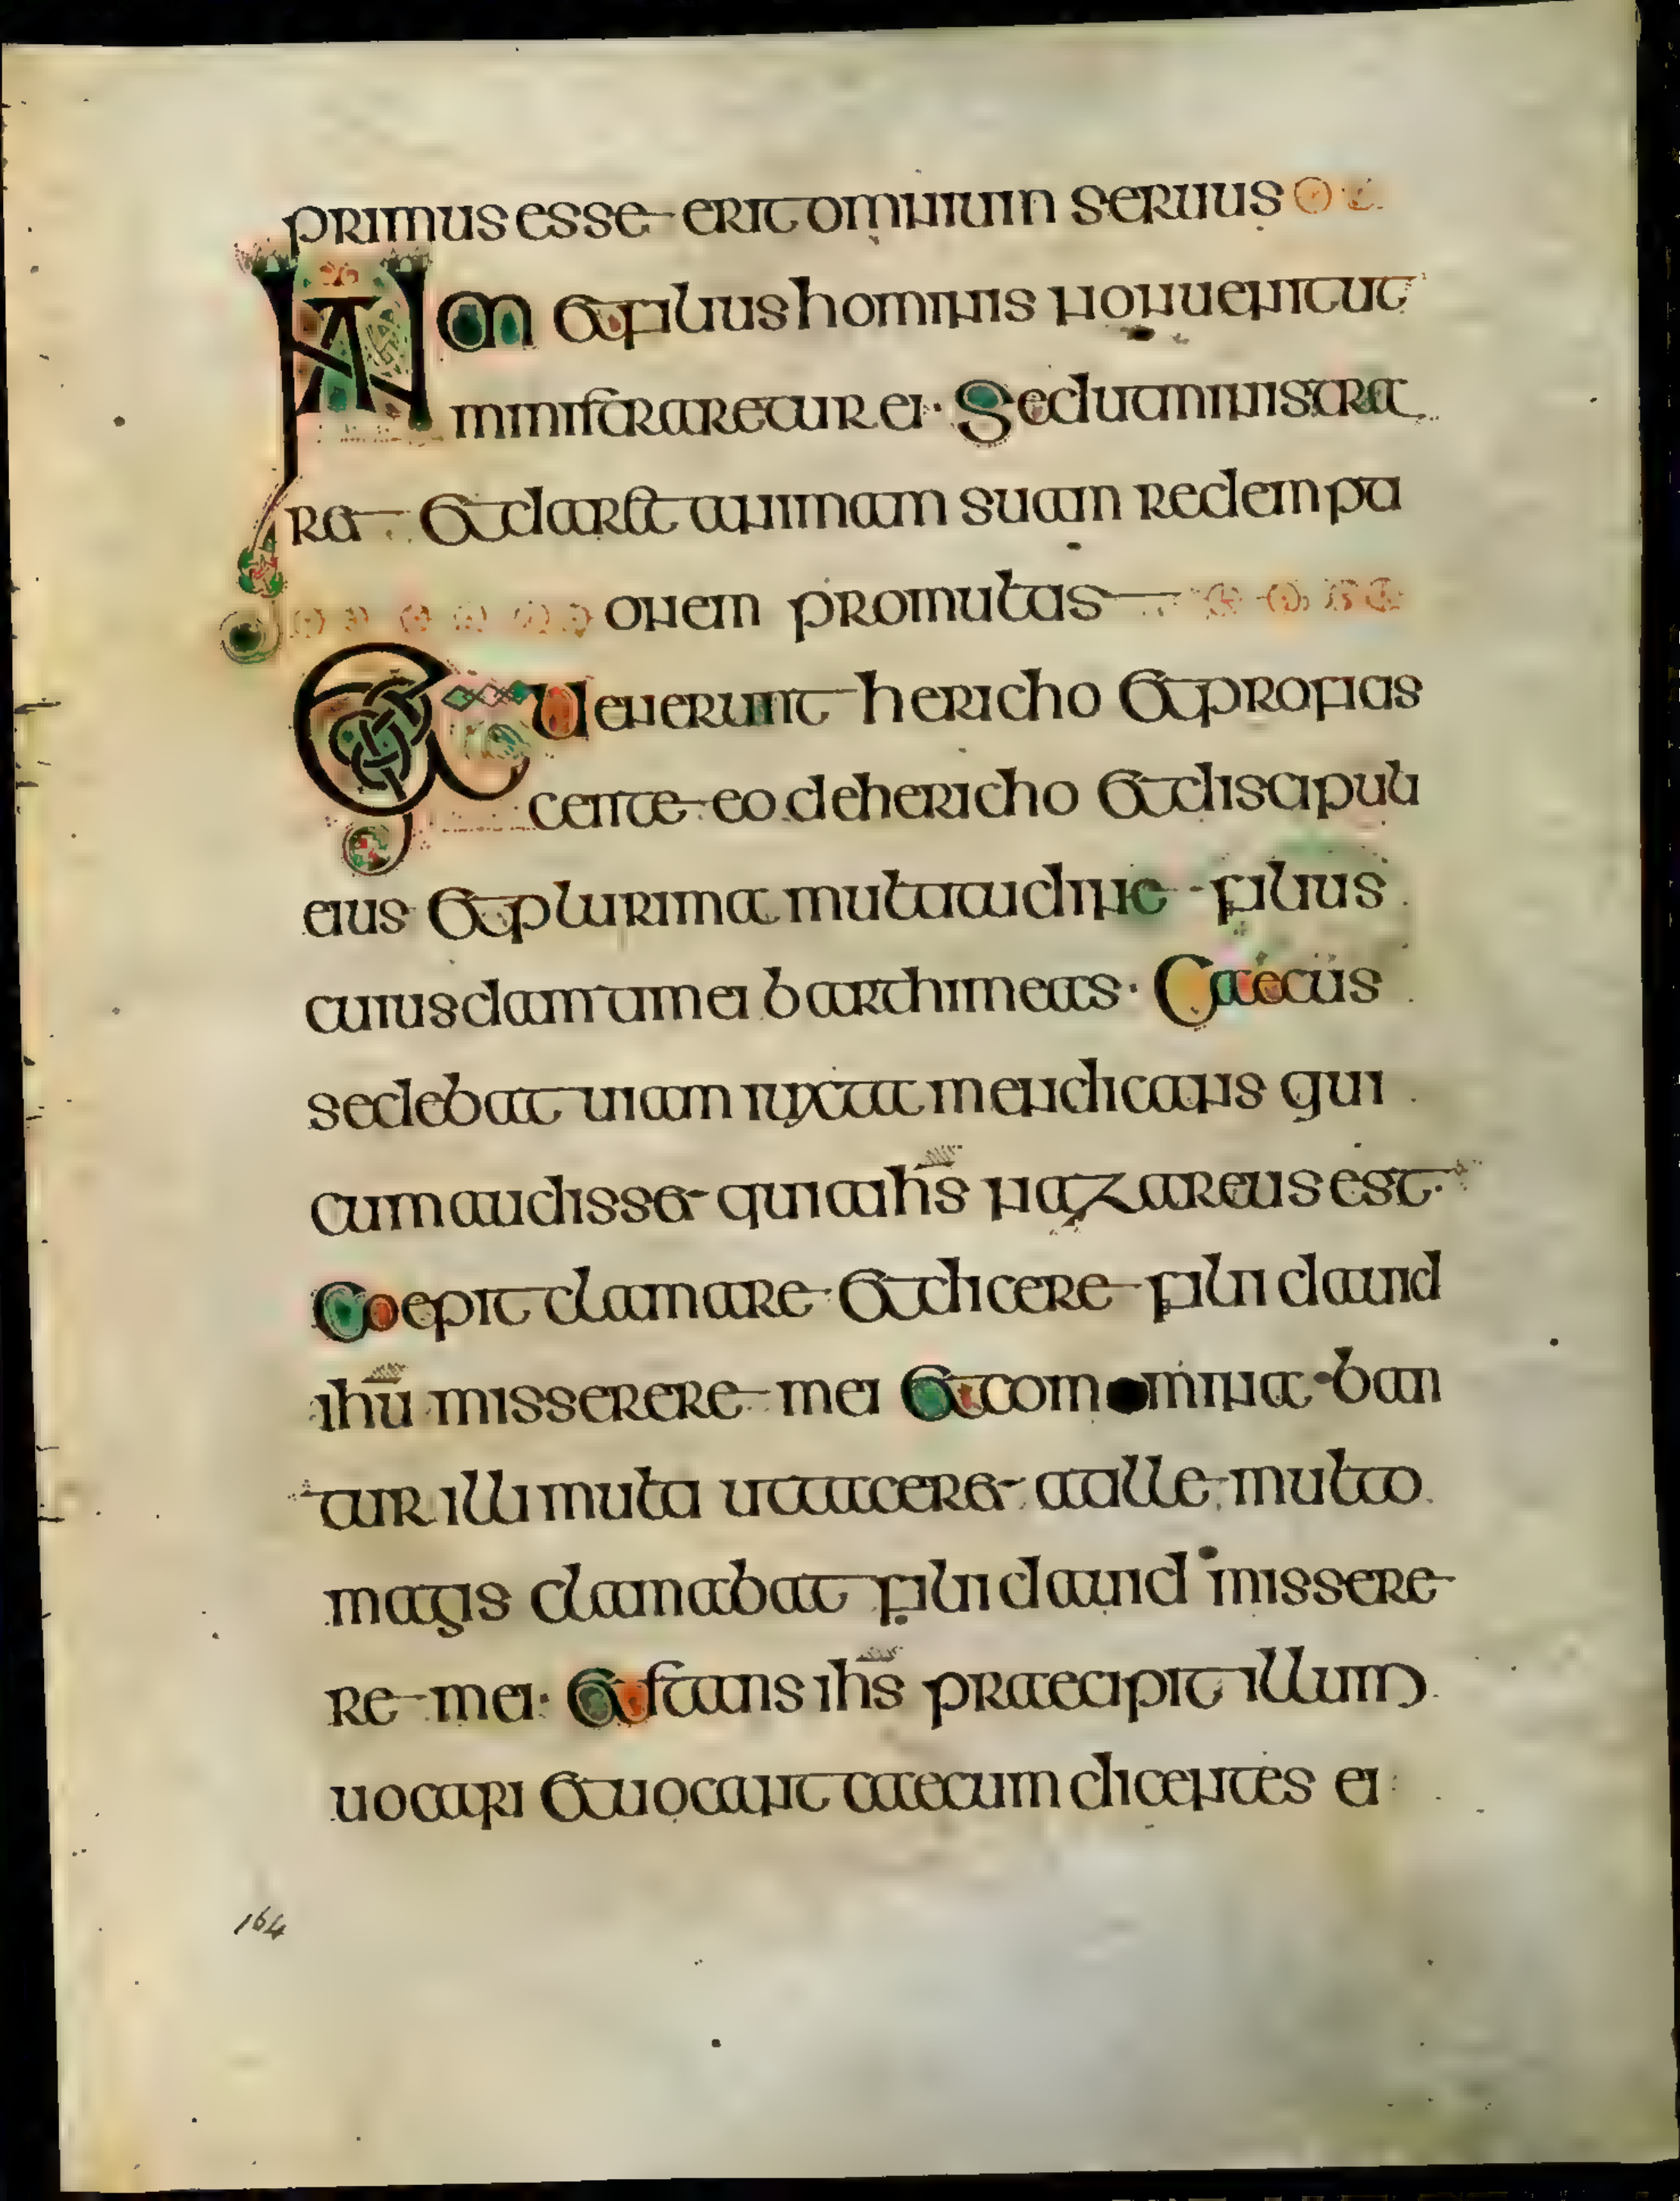 primus esse erit omnium seruus
Nam et filius hominis non uenit ut
ministraretur ei · Sed ut ministra
ret et daret animam suam redempti
onem pro multis
Et uenerunt hericho et profias
cente eo de hericho et discipuli
eius et plurima multitudine filius
cuiusdam timei barthimeas · Caecus
sedebat uiam iuxta mendicans qui
cum audisset quia ihs nazareus est
Coepit clamare et dicere fili dauid
ihu misserere mei et com minaban
tur illi multi ut taceret at ille multo
magis clamabat fili dauid missere
re mei · Et stans ihs praecipit illum
uocari et uocant caecum dicentes ei
164